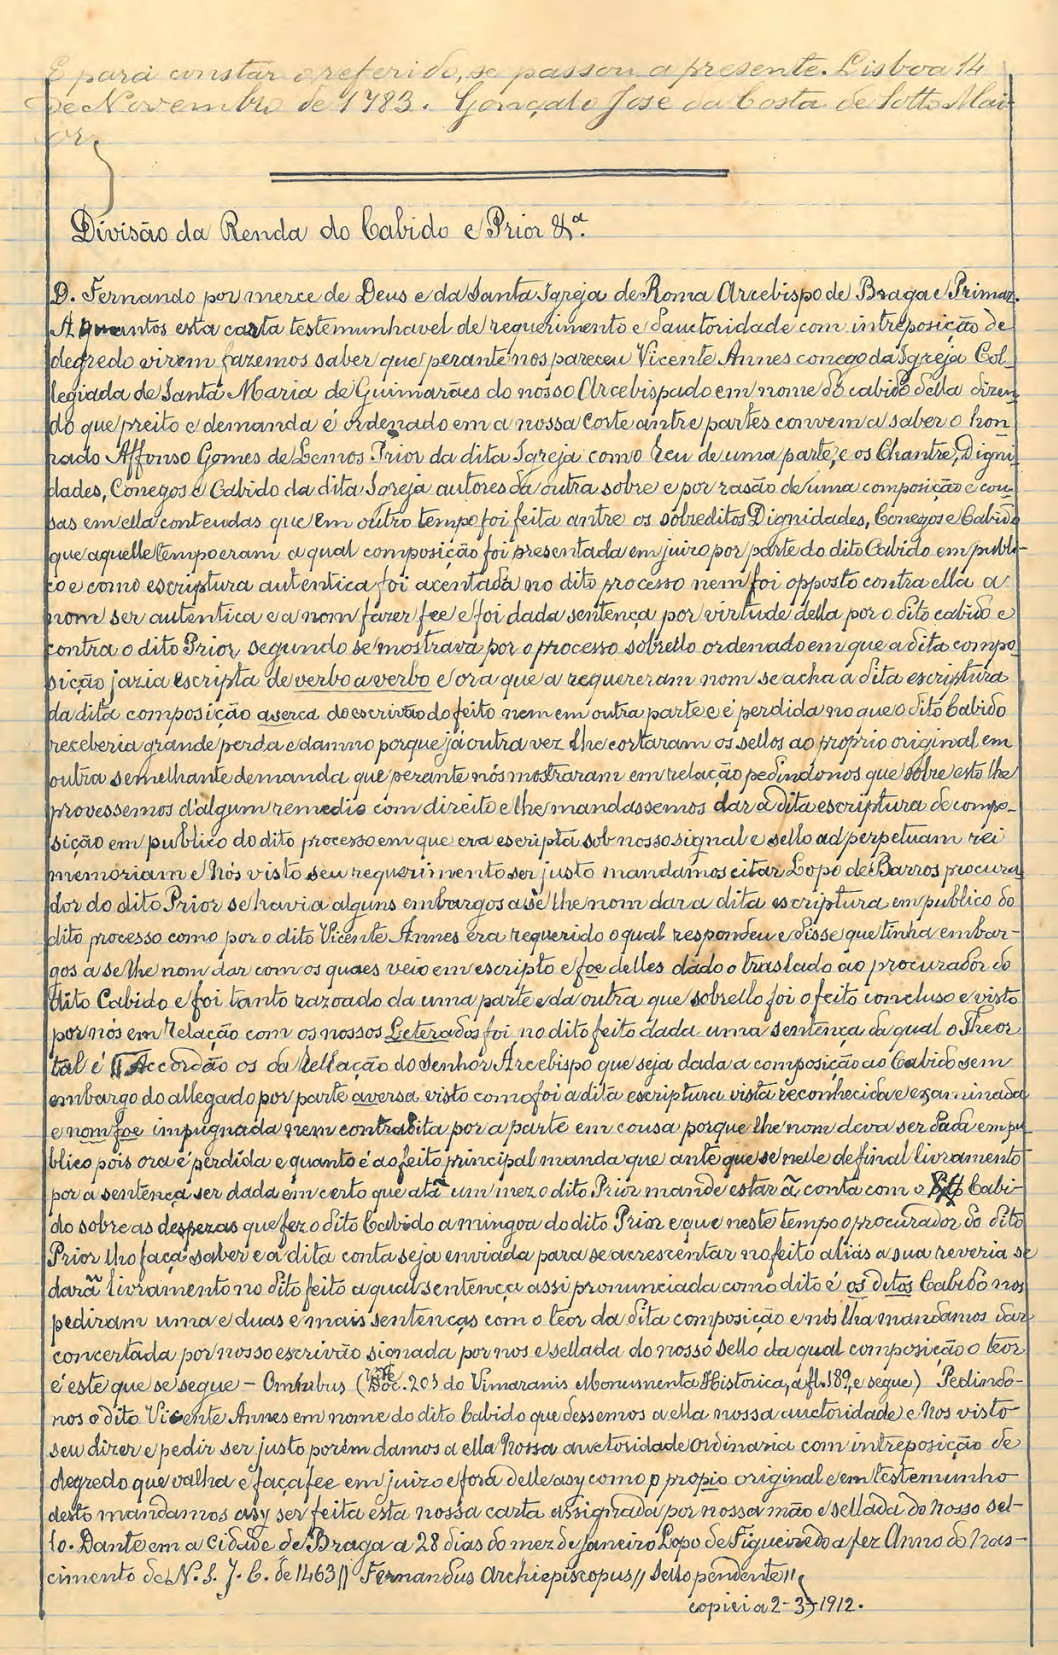 E para constar o referido, se passou a presente. Lisboa 14
de Novembro de 1783. Gonçalo José da Costa de Sotto Mai-
or,
Divisão da Renda do Cabido e Prior &ª.
D. Fernando por merce de Deus e da Santa Igreja de Roma Arcebispo de Braga e Primaz.
A quantos esta carta testemunhavel de requerimento e dauctoridade com intreposição de
degredo virem fazemos saber que perante nos pareceu Vicente Annes conego da Igreja Col-
legiada de Santa Maria de Guimarães do nosso Arcebispado em nome do cabido della dizen-
do que preito e demanda é ordenado em a nossa corte antre partes convem a saber o hon-
rado Affonso Gomes de Lemos Prior da dita Igreja como Reu de uma parte, e os Chantre, Digni-
dades, Conegos e Cabido da dita Igreja autores da outra sobre e por rasão de uma composição e cou-
sas em ella contendas que em outro tempo foi feita antre os sobreditos Dignidades, Conegos e Cabido
que aquelle tempo eram a qual composição foi presentada em juizo por parte do dito Cabido em publi-
co e como escriptura autentica foi acentada no dito processo nem foi opposto contra ella a
nom ser autentica e a nom fazer fee e foi dada sentença por virtude della por o dito cabido e
contra o dito Prior segundo se mostrava por o processo sobrello ordenado em que a dita compo-
sição jazia escripta de verbo a verbo e ora que a requereram nom se acha a dita escriptura
da dita composição aserca do escrivão do feito nem em outra parte e é perdida no que o dito Cabido
receberia grande perda e damno porque já outra vez lhe cortaram os sellos ao proprio original em
outra semelhante demanda que perante nós mostraram em relação pedindonos que sobre esto lhe
provessemos d'algum remedio com direito e lhe mandassemos dar a dita escriptura de compo-
sição em publico do dito processo em que era escripta sob nosso signal e sello ad perpetuam rei
memoriam e Nós visto seu requerimento ser justo mandamos citar Lopo de Barros procura-
dor do dito Prior se havia alguns embargos a se lhe nom dar a dita escriptura em publico do
dito processo como por o dito Vicente Annes era requerido o qual respondeu e disse que tinha embar-
gos a se lhe nom dar com os quaes veio em escripto e foe delles dado o traslado ao procurador do
dito Cabido e foi tanto razoado da uma parte e da outra que sobrello foi o feito concluso e visto
por nós em relação com os nossos Leterados foi no dito feito dada uma sentença da qual o Theor
tal é || Accordão os da Rellação do Senhor Arcebispo que seja dada a composição ao Cabido sem
embargo do allegado por parte aversa visto como foi a dita escriptura vista reconhecida e examinada
e nom foe impugnada nem contradita por a parte em cousa porque lhe nom deva ser dada em pu-
blico pois ora é perdida e quanto é ao feito principal manda que ante que se nelle de final livramento
por a sentença ser dada em certo que atã um mez o dito Prior mande estar ã conta com o Cabi-
do sobre as despezas que fez o dito Cabido a mingoa do dito Prior e que neste tempo o procurador do dito
Prior lho faça saber e a dita conta seja enviada para se acrescentar no feito aliás a sua reveria se
darã livramento no dito feito a qual sentença assi pronunciada como dito é os ditos Cabido nos
pediram uma e duas e mais sentenças com o teor da dita composição e nós lha mandamos dar
concertada por nosso escrivão signada por nos e sellada do nosso sello da qual composição o teor
é este que se segue – Omnibus (Doc. 201 do Vimaranis Monumenta Historica, a fl. 189, e segue) Pedindo-
nos o dito Vicente Annes em nome do dito Cabido que dessemos a ella nossa auctoridade e Nos visto
seu dizer e pedir ser justo porém damos a ella Nossa auctoridade Ordinaria com intreposição de
degredo que valha e faça fee em juizo e fora delle asy como o propio original e em testemunho
desto mandamos asy ser feita esta nossa carta assignada por nossa mão e sellada do nosso sel-
lo. Dante em a Cidade de Braga a 28 dias do mez de Janeiro Lopo de Figueiredo a fez Anno do Nas-
cimento de N. S. J. C. de 1463 || Fernandus Archiepiscopus || Sello pendente ||
copiei a 2-3-1912.